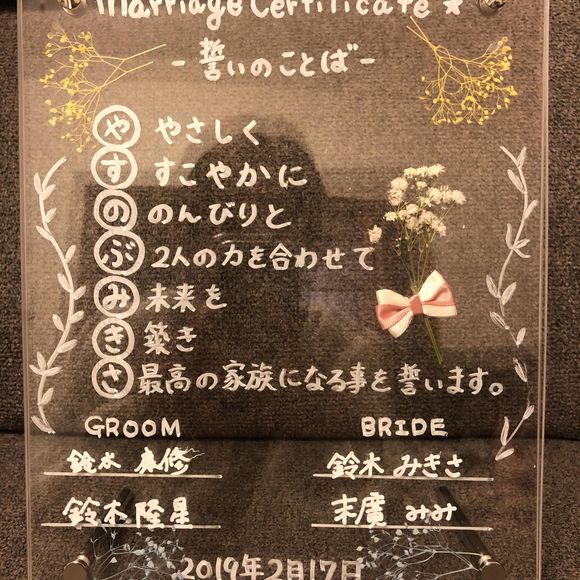 Marriage Certificate ★
- 誓いのことば -
や やさしく
す すこやかに
の のんびりと
ぶ 2人の力を合わせて
み 未来を
き 築き
さ 最高の家族になる事を誓います。
GROOM BRIDE
鈴木 康修 鈴木 みきさ
鈴木 隆星 末廣 みみ
2019年2月17日